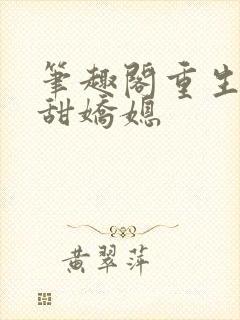 筆趣閣重生
甜嬌媳
黄翠萍